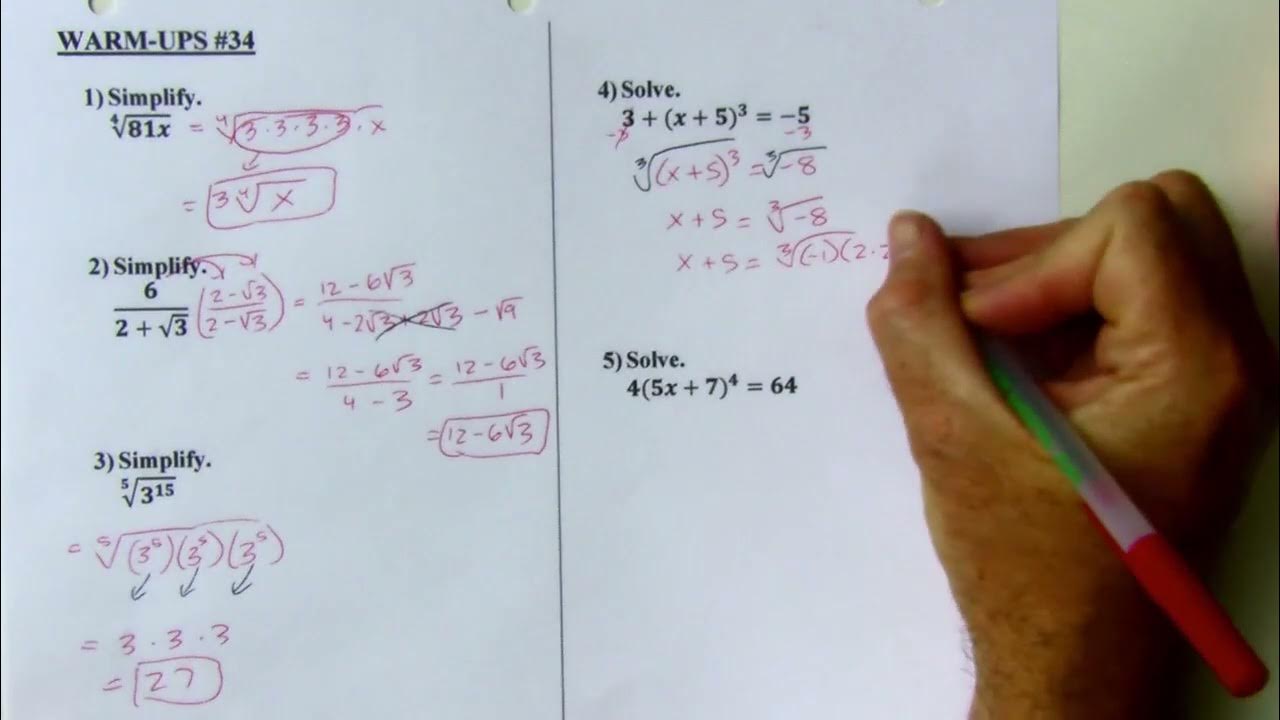 WARM-UPS #34
1) Simplify.
∜81x = ∜3·3·3·3·x
= 3∜x
2) Simplify.
6/(2 + √3) ((2-√3)/(2-√3)) = (12 - 6√3)/(4 - 2√3 + 2√3 - √9)
= (12 - 6√3)/(4 - 3) = (12 - 6√3)/1
= 12 - 6√3
3) Simplify.
⁵√3¹⁵
= ⁵√(3⁵)(3⁵)(3⁵)
= 3 · 3 · 3
= 27
4) Solve.
3 + (x + 5)³ = −5
-3 -3
∛(x + 5)³ = ∛-8
x + 5 = ∛-8
x + 5 = ∛(-1)(2·2
5) Solve.
4(5x + 7)⁴ = 64